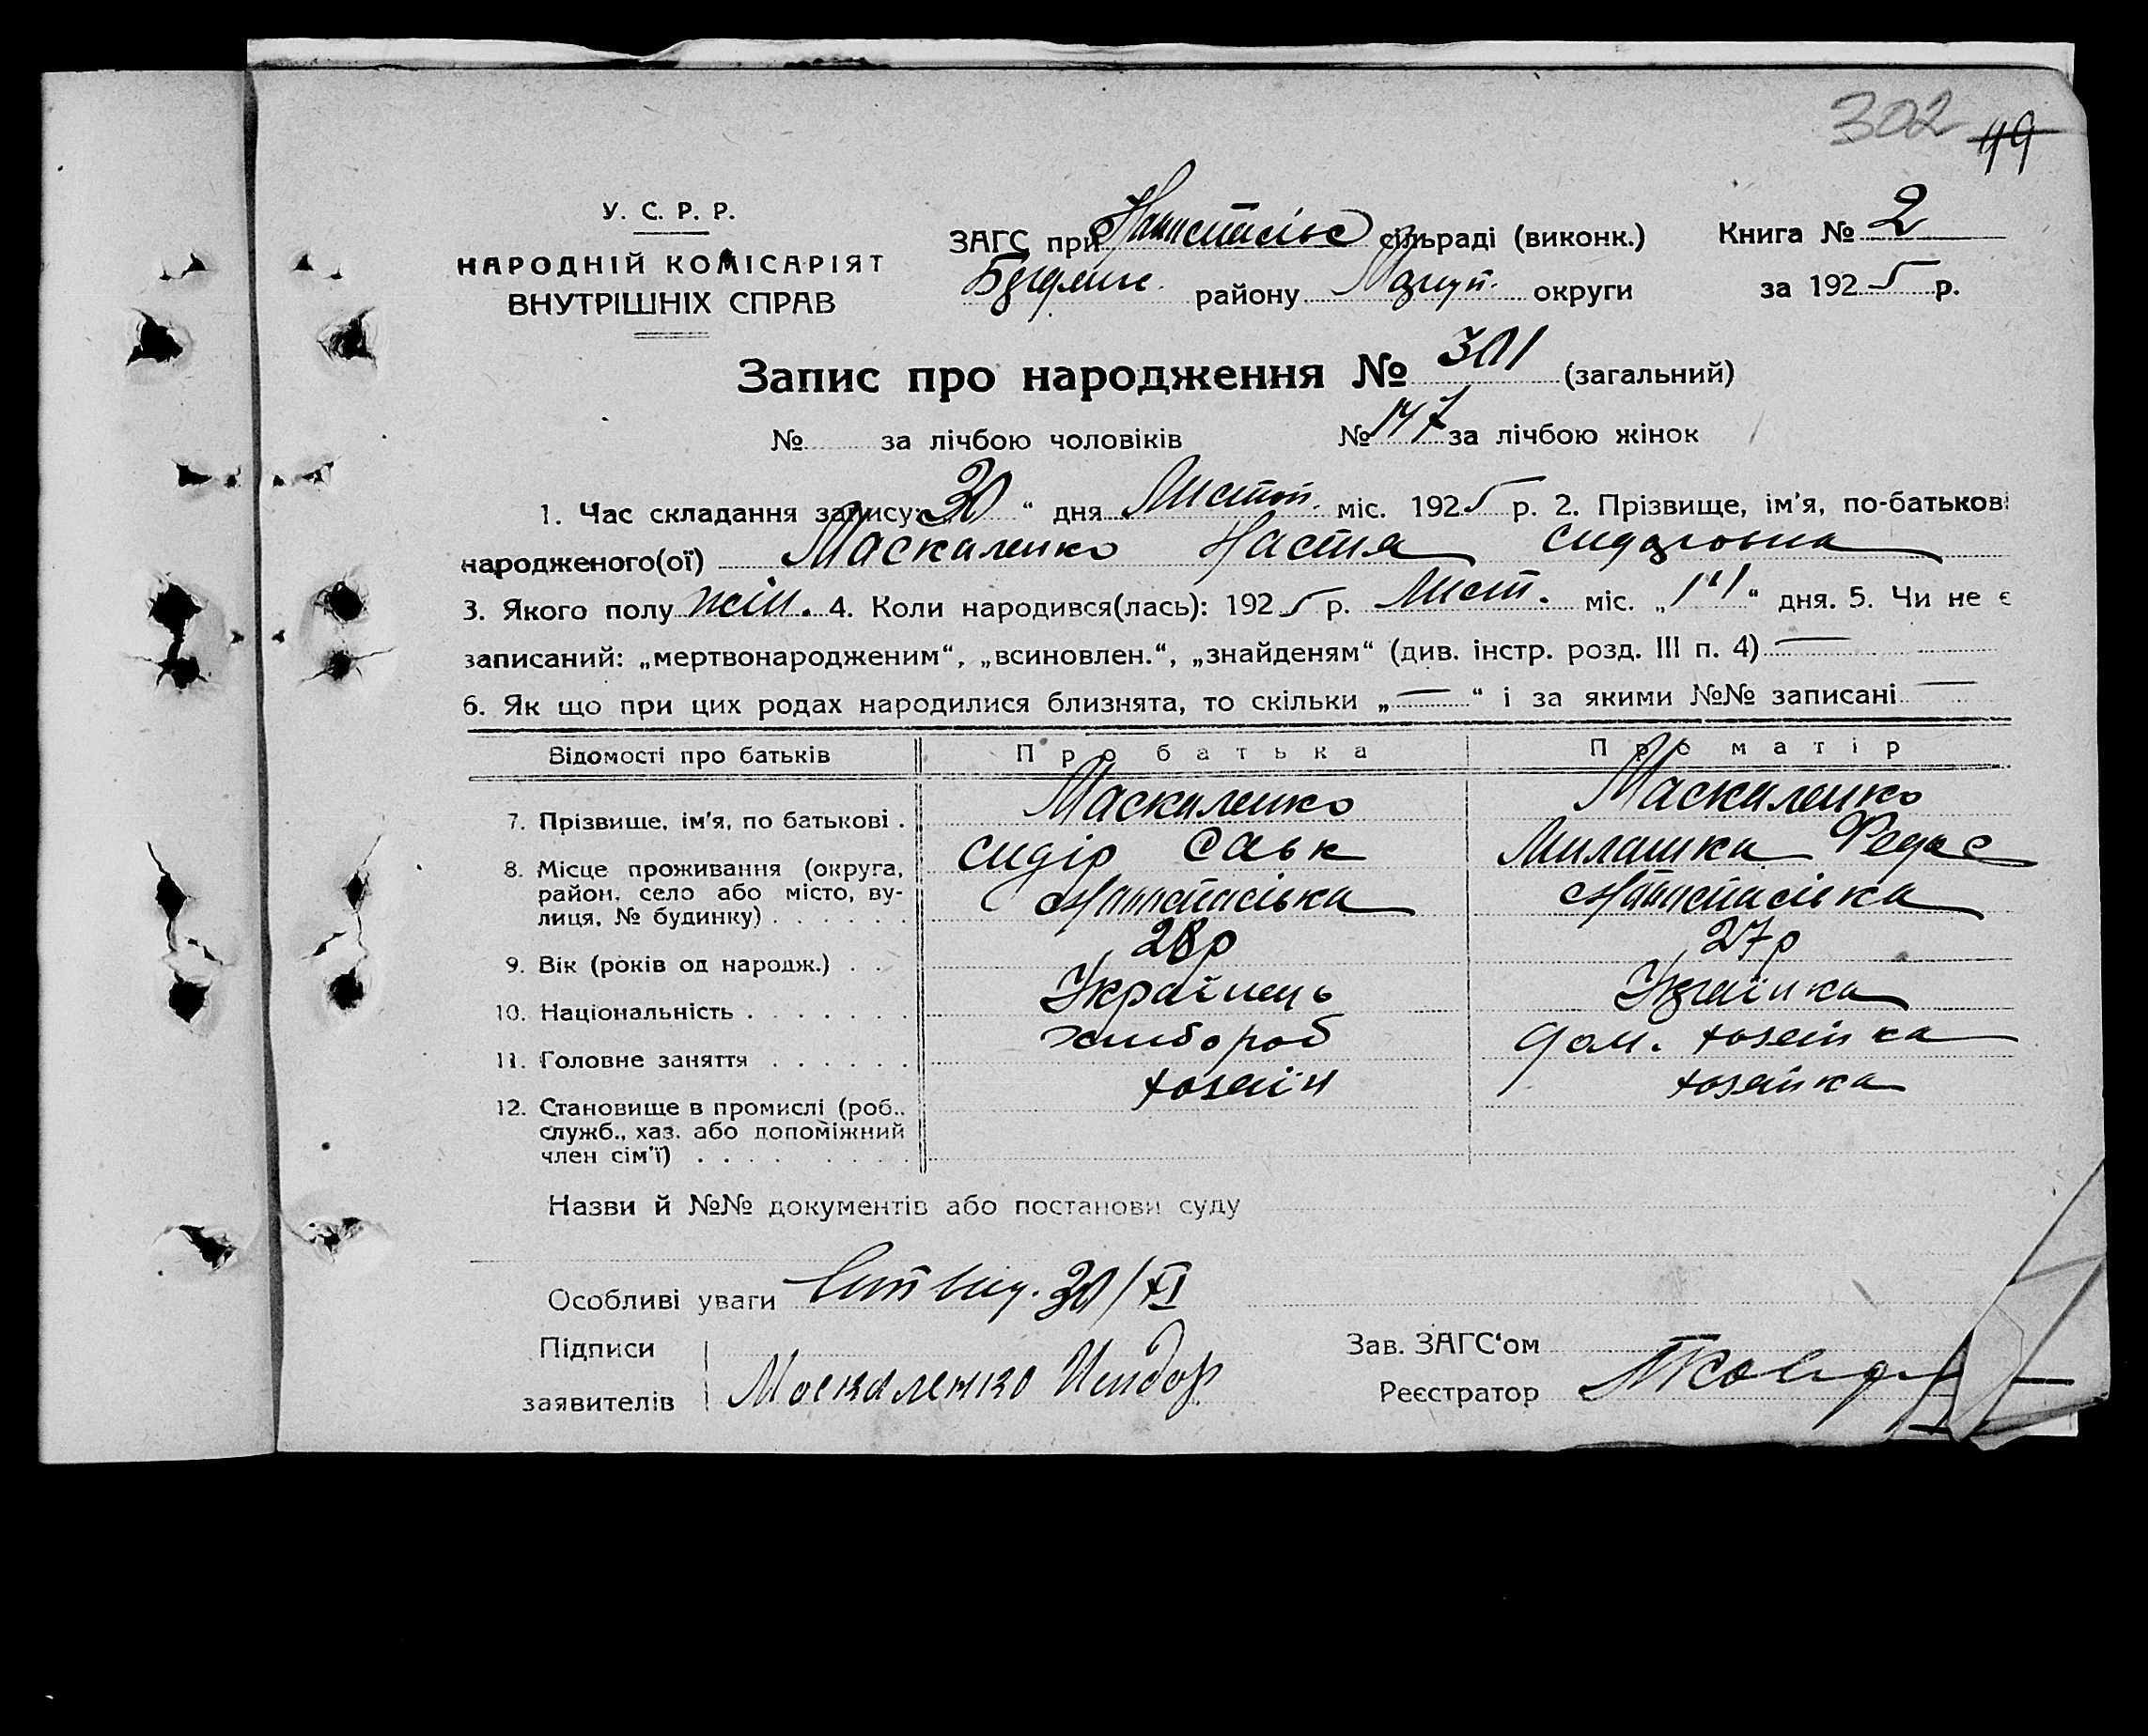 302 49
У. С. Р. Р.
НАРОДНІЙ КОМІСАРІЯТ
ВНУТРІШНІХ СПРАВ
ЗАГС при сільраді (виконк.) Книга № 2
району округи за 1925 р.
Запис про народження № 301 (загальний)
№ за лічбою чоловіків № 147 за лічбою жінок
1. Час складання запису: 30 “ дня Листоп. міс. 1925 р. 2. Прізвище, ім'я, по-батькові
народженого(ої) Маскаленко Настя Сидоровна
3. Якого полу жін. 4. Коли народився(лась): 1925 р. Лист. міс. „ “ дня. 5. Чи не є
записаний: „мертвонародженим“, „всиновлен.“, „знайденям“ (див. інстр. розд. III п. 4) —
6. Як що при цих родах народилися близнята, то скільки „—“ і за якими №№ записані —
Відомості про батьків Про батька Про матір
7. Прізвище, ім'я, по батькові . Маскаленко Маскаленко
Сидір Савк Милашка Федос
8. Місце проживання (округа,
район, село або місто, ву-
лиця, № будинку) . . . . . .
9. Вік (років од народж.) . . 28р 27р
10. Національність . . . . . . . Українець Українка
11. Головне заняття . . . . . . хлибороб дом. хозяйка
12. Становище в промислі (роб.. хозяїн хозяйка
служб., хаз. або допоміжний
член сім'ї) . . . . . . . . .
Назви й №№ документів або постанови суду
Особливі уваги 30/XI
Підписи
заявителів Москаленко Исидор
Зав. ЗАГС‘ом
Реєстратор